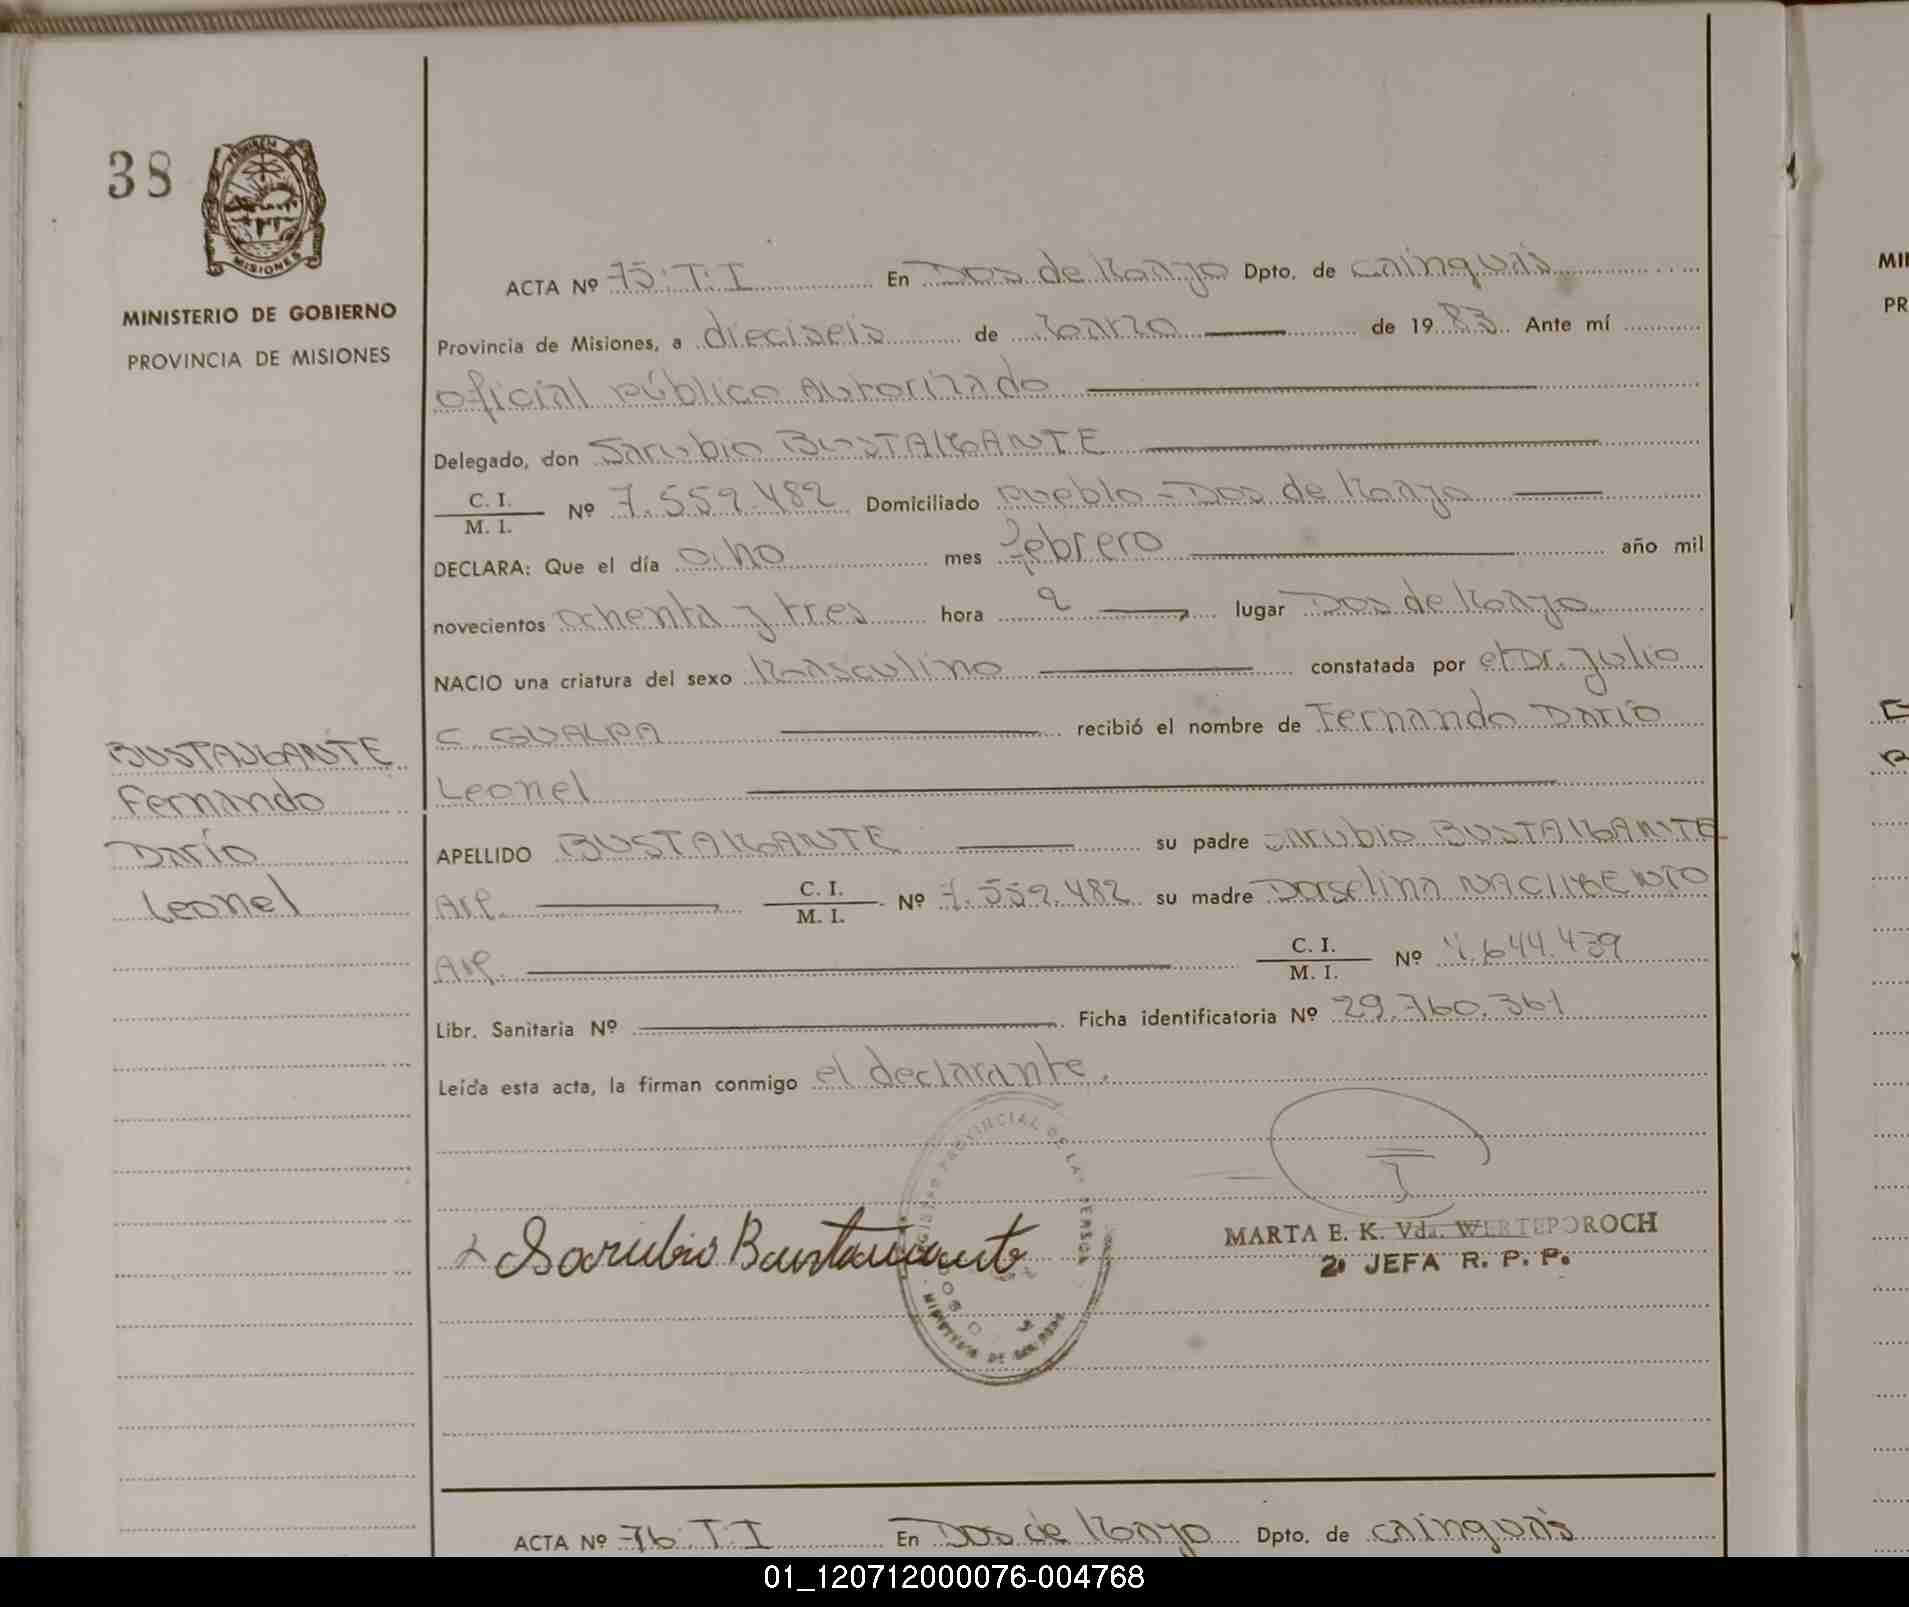 38
PROVINCIA DE
MISIONES
MINISTERIO DE GOBIERNO
PROVINCIA DE MISIONES
ACTA Nº 75. T. I En Dos de Mayo Dpto. de Cainguás
Provincia de Misiones, a dieciseis de Marzo de 1983. Ante mí
Oficial Público Autorizado
Delegado, don Sarubio BUSTAMANTE
C. I.
M. I. Nº 7.559.482 Domiciliado Pueblo - Dos de Mayo
DECLARA: Que el día ocho mes febrero año mil
novecientos ochenta y tres hora 2 lugar Dos de Mayo
NACIO una criatura del sexo Masculino constatada por el Dr. Julio
C. GUALPA recibió el nombre de Fernando Darío
Leonel
BUSTAMANTE
Fernando
Darío
Leonel
APELLIDO BUSTAMANTE su padre Sarubio BUSTAMANTE
Arg. C. I.
M. I. Nº 7.559.482 su madre NACIMENTO
Arg. C. I.
M. I. Nº .644.439
Libr. Sanitaria Nº Ficha identificatoria Nº 29.760.361
Leída esta acta, la firman conmigo el declarante.
PROVINCIAL DE LAS PERSONAS
MINISTERIO DE GOBIERNO
Sarubio Bustamante
MARTA E. K. Vda. WERTEPOROCH
2ª JEFA R. P. P.
ACTA Nº 76. T. I En Dos de Mayo Dpto. de Cainguás
MI
PR
01_120712000076-004768